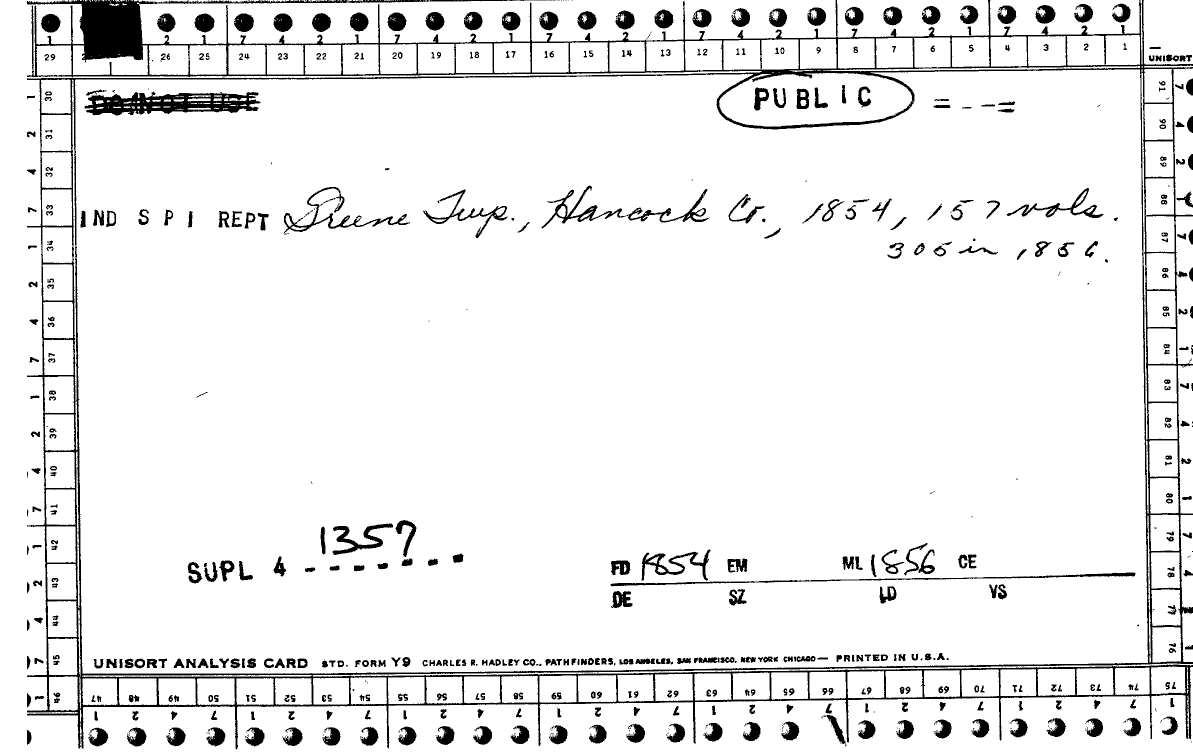 1 2 1 7 4 2 1 7 4 2 1 7 4 2 1 7 4 2 1 7 4 2 1 7 4 2 1
29 26 25 24 23 22 21 20 19 18 17 16 15 14 13 12 11 10 9 8 7 6 5 4 3 2 1
UNISORT
DO NOT USE
PUBLIC = - - =
IND S P I REPT Greene Twp., Hancock Co., 1854, 157 vols.
305 in 1856.
1357
SUPL 4 - - - - - -
FD 1854 EM ML 1856 CE
DE SZ LD VS
UNISORT ANALYSIS CARD STD. FORM Y9 CHARLES R. HADLEY CO., PATHFINDERS, LOS ANGELES, SAN FRANCISCO, NEW YORK CHICAGO — PRINTED IN U.S.A.
47 48 49 50 51 52 53 54 55 56 57 58 59 60 61 62 63 64 65 66 67 68 69 70 71 72 73 74 75
1 2 4 7 1 2 4 7 1 2 4 7 1 2 4 7 1 2 4 7 1 2 4 7 1 2 4 7 1